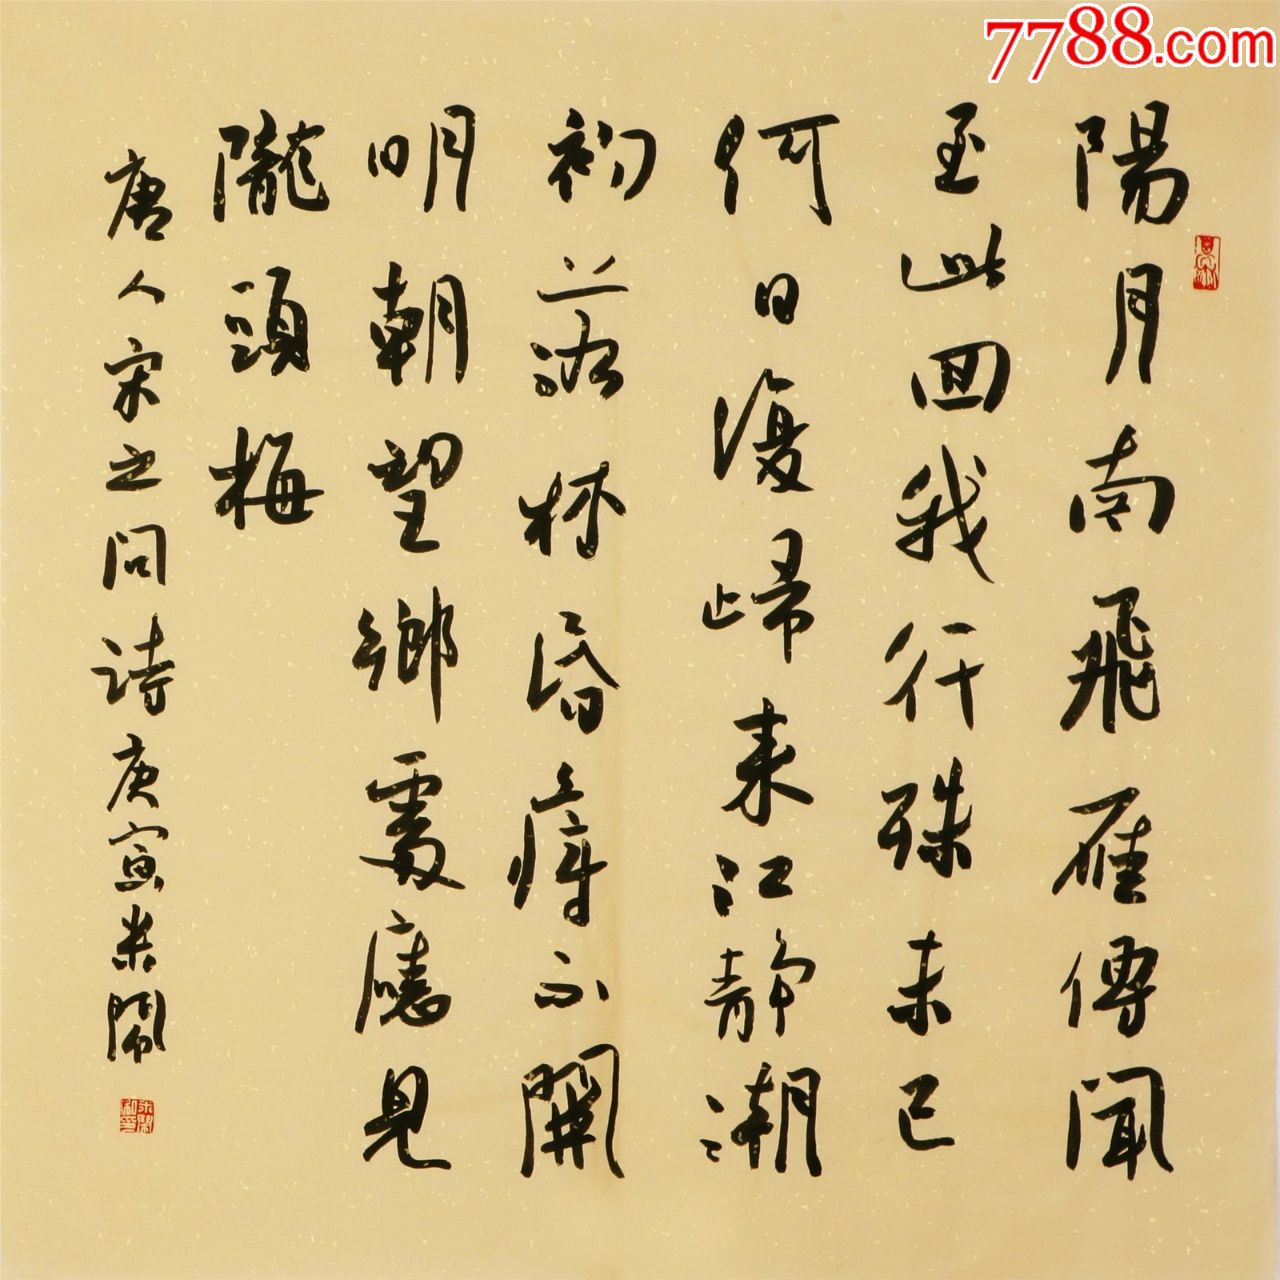 7788.com
陽月南飛雁傳聞
至此回我行殊未已
何日復歸來江静潮
初落林昏瘴不開
明朝望鄉處應見
隴頭梅
唐人宋之问诗庚寅米闹